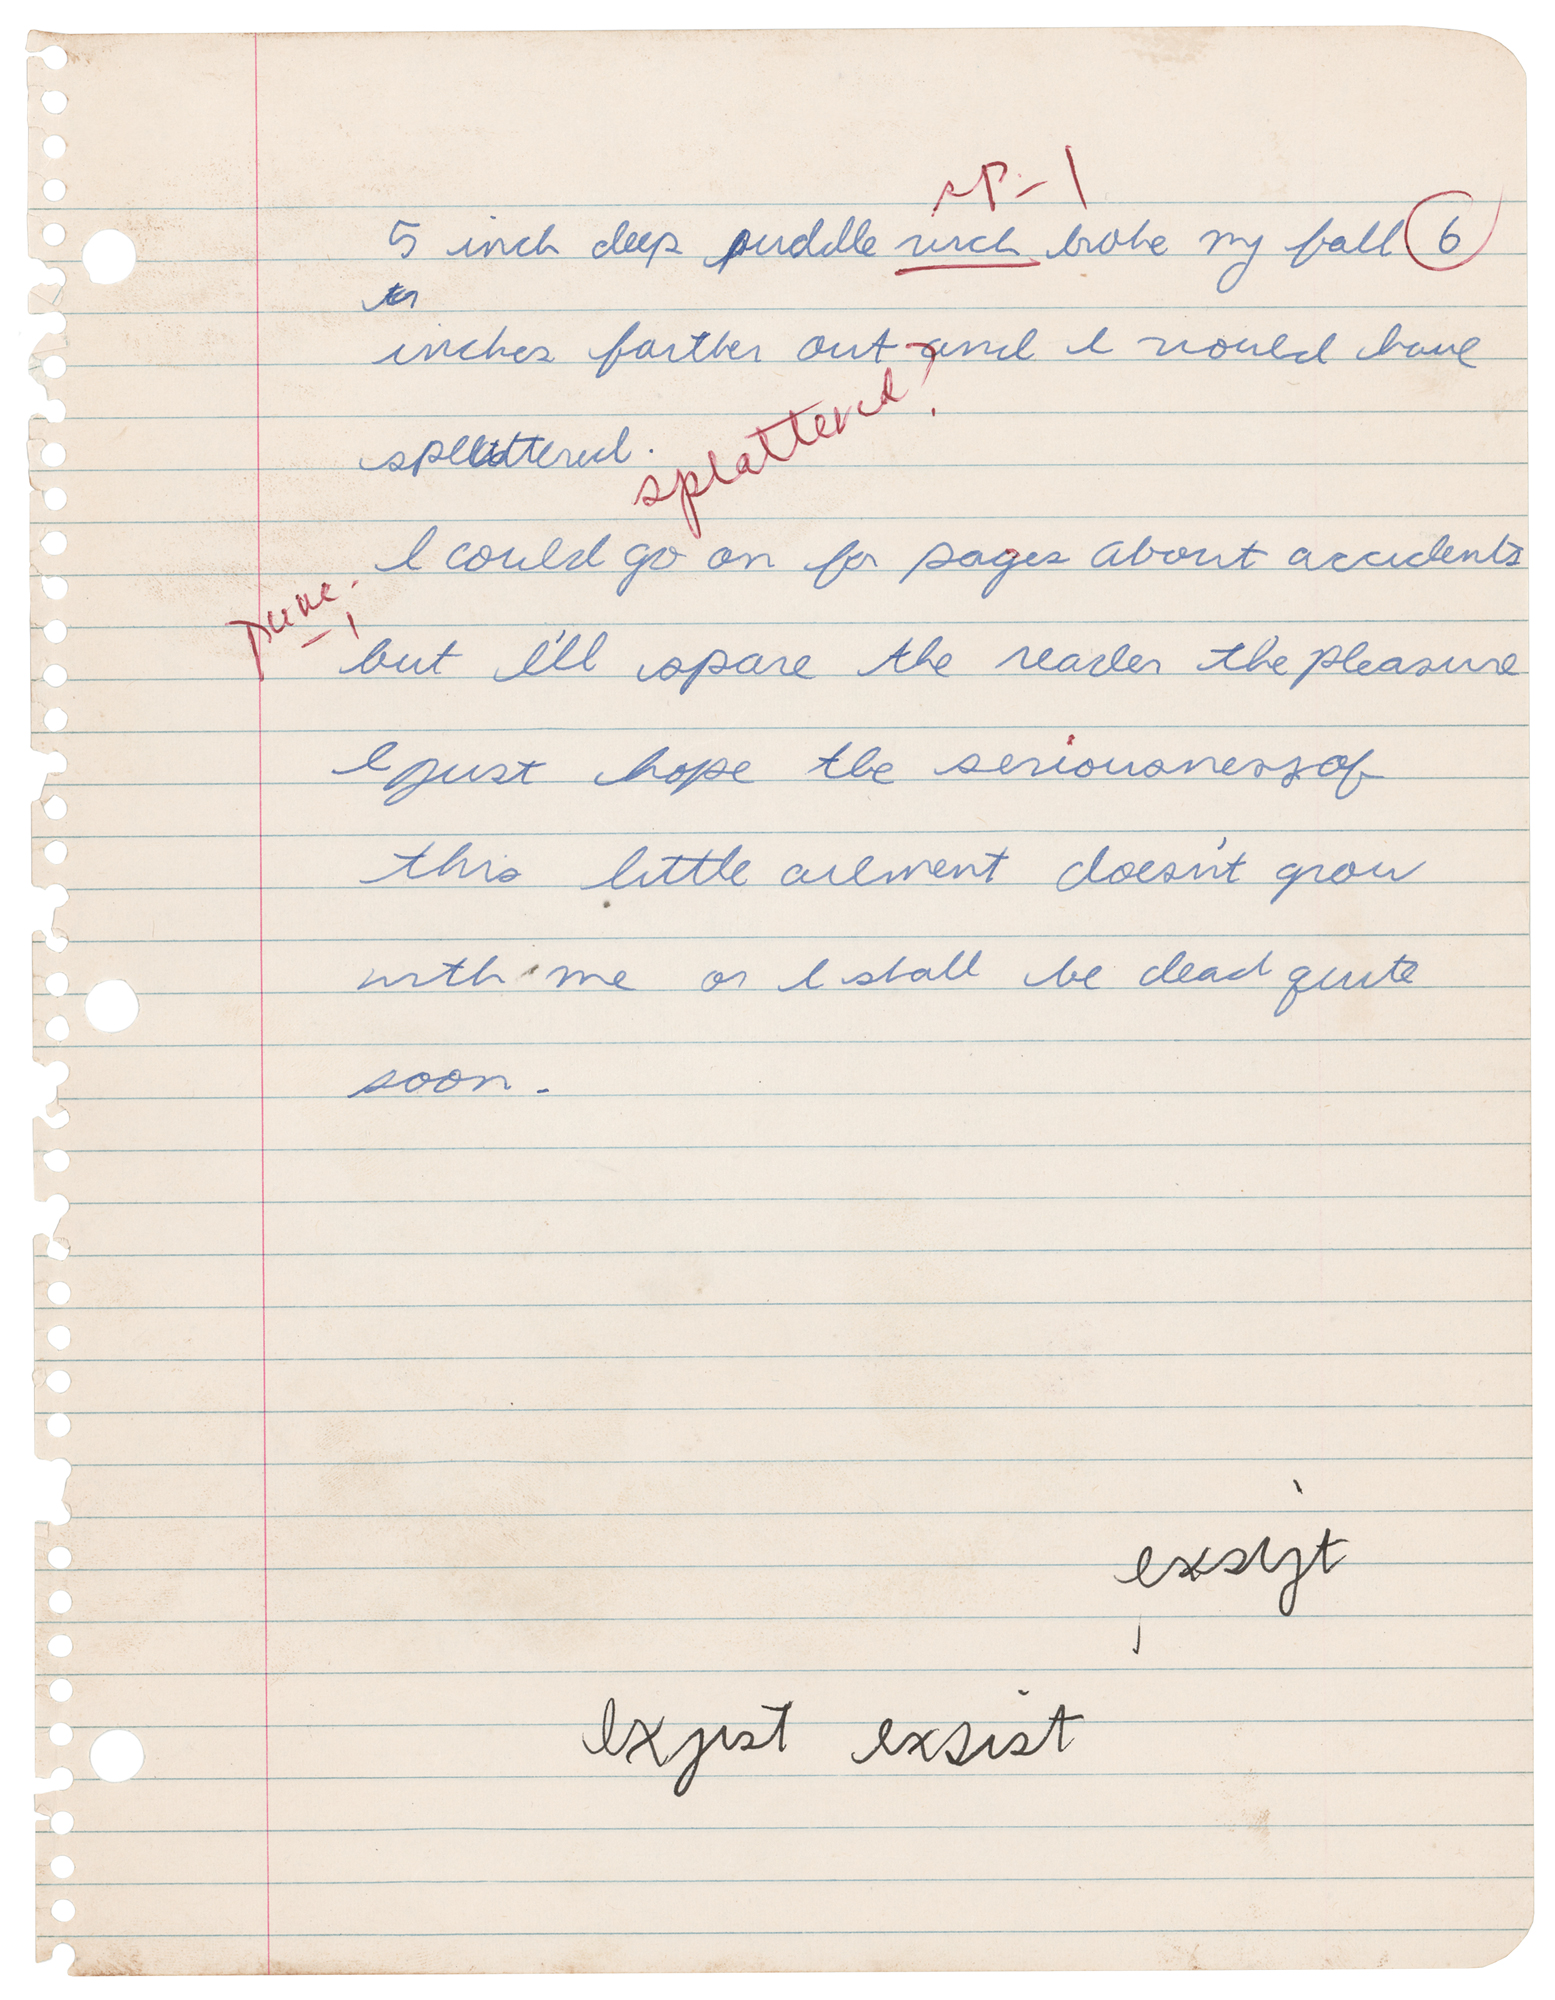 sp - 1
5 inch deep puddle wich broke my fall 6
inches farther out and I would have
splattered.
splattered?
I could go on for pages about accidents
punc. -1
but I'll spare the reader the pleasure
I just hope the seriousness of
this little ailment doesn't grow
with me or I shall be dead quite
soon.
exsijt
exjist exsist